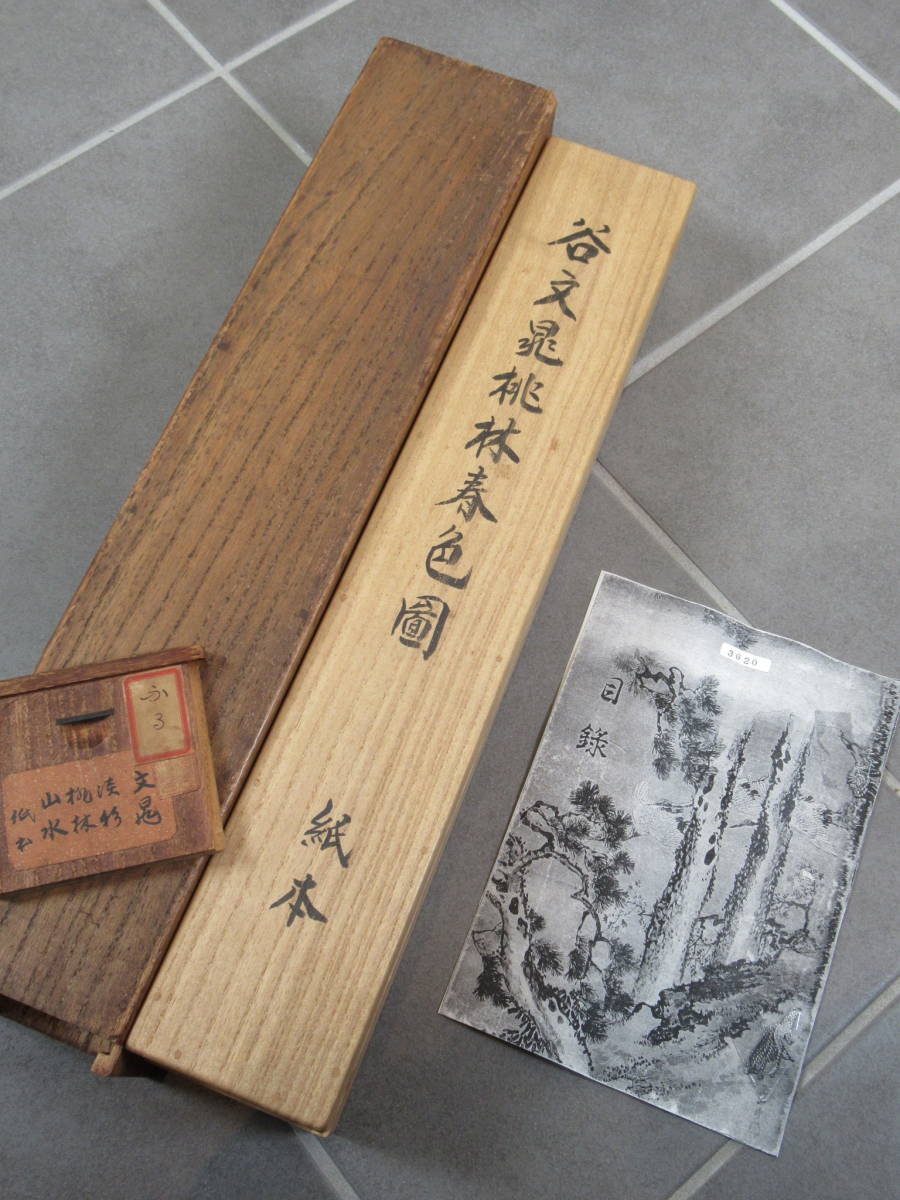 谷文晁桃林春色圖
紙本
ふる
文晁
淡彩
桃林
山水
紙本
3620
目錄